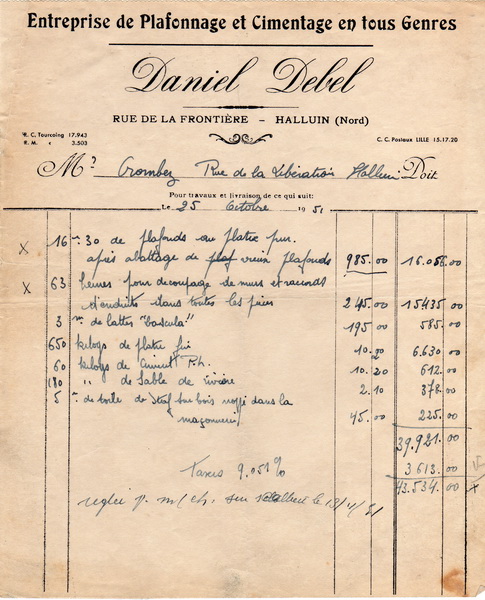 Entreprise de Plafonnage et Cimentage en tous Genres
Daniel Debel
RUE DE LA FRONTIÈRE - HALLUIN (Nord)
R. C. Tourcoing 17.943
R. M. « 3.503
C. C. Postaux LILLE 15.17.20
Mr Crombez Rue de la Libération Halluin Doit
Pour travaux et livraison de ce qui suit:
Le 25 Octobre 1951
x 16 m 30 de plafonds au platre pur
après abattage de vieux plafonds 985.00 16.056.00
x 63 heures pour decoupage de murs et raccords
d'enduits dans toutes les pièces 245.00 15435.00
3 m de lattes "bascula" 195.00 585.00
650 kilogs de platre fin 10.20 6.630.00
60 kilogs de Ciment 10.20 612.00
180 " de Sable de rivière 2.10 378.00
5 m de toile de dans la
maçonnerie 45.00 225.00
39.921.00
Taxes 9.051% 3 613.00
43.534.00 x
reglé p. m/ch. sur Halluin le